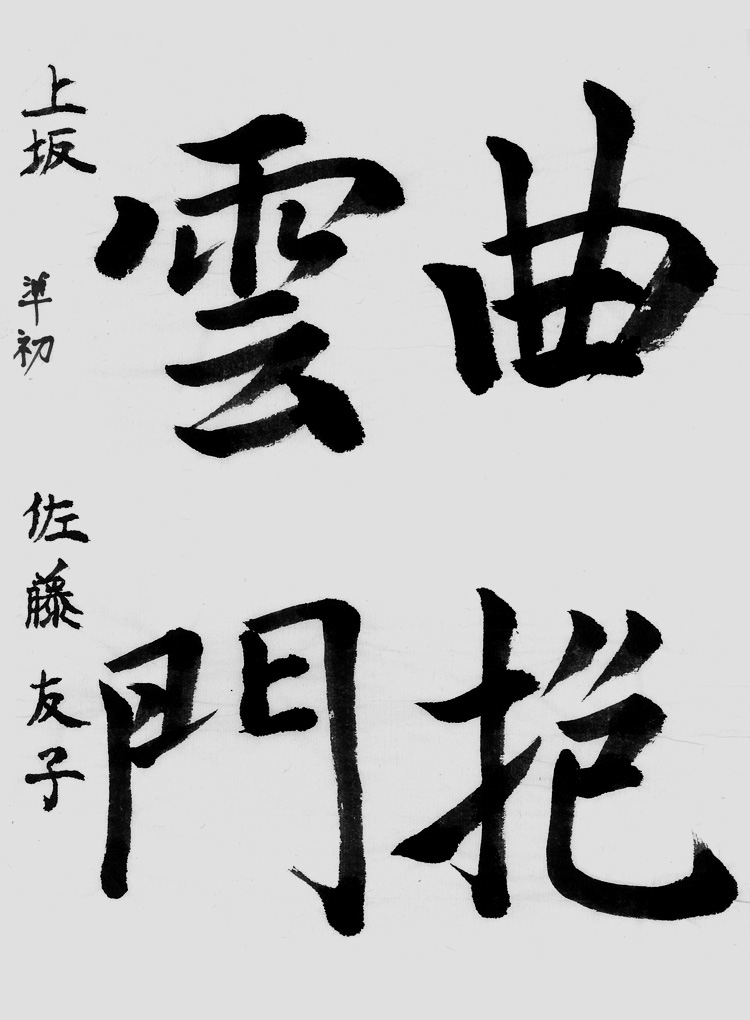 曲抱
雲門
上坂 準初 佐藤友子